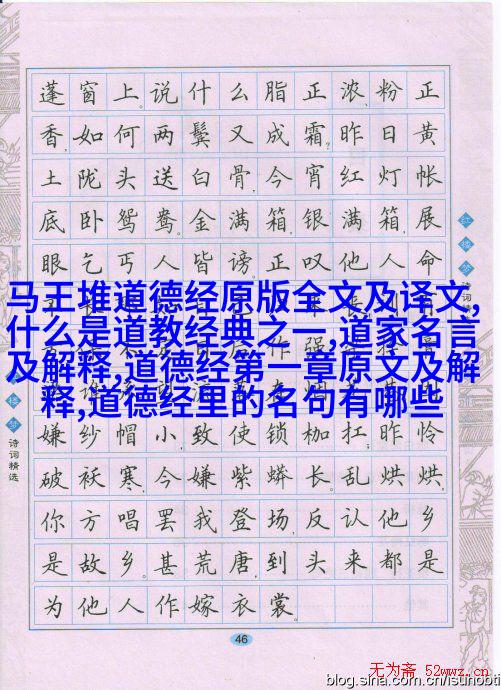 蓬窗上。说什么脂正浓、粉正
香,如何两鬓又成霜?昨日黄
土陇头送白骨,今宵红灯帐
底卧鸳鸯。金满箱,银满箱,展
眼乞丐人皆谤。正叹他人命
马王堆道德经原版全文及译文,
什么是道教经典之一,道家名言
及解释,道德经第一章原文及解
释,道德经里的名句有哪些
嫌纱帽小,致使锁枷扛,昨怜
破袄寒,今嫌紫蟒长。乱烘烘,
你方唱罢我登场,反认他乡
是故乡。甚荒唐,到头来都是
为他人作嫁衣裳。
46
红楼梦
诗词精选
无为斋 52wwz.cn
blog.sina.com.cn/isunobti